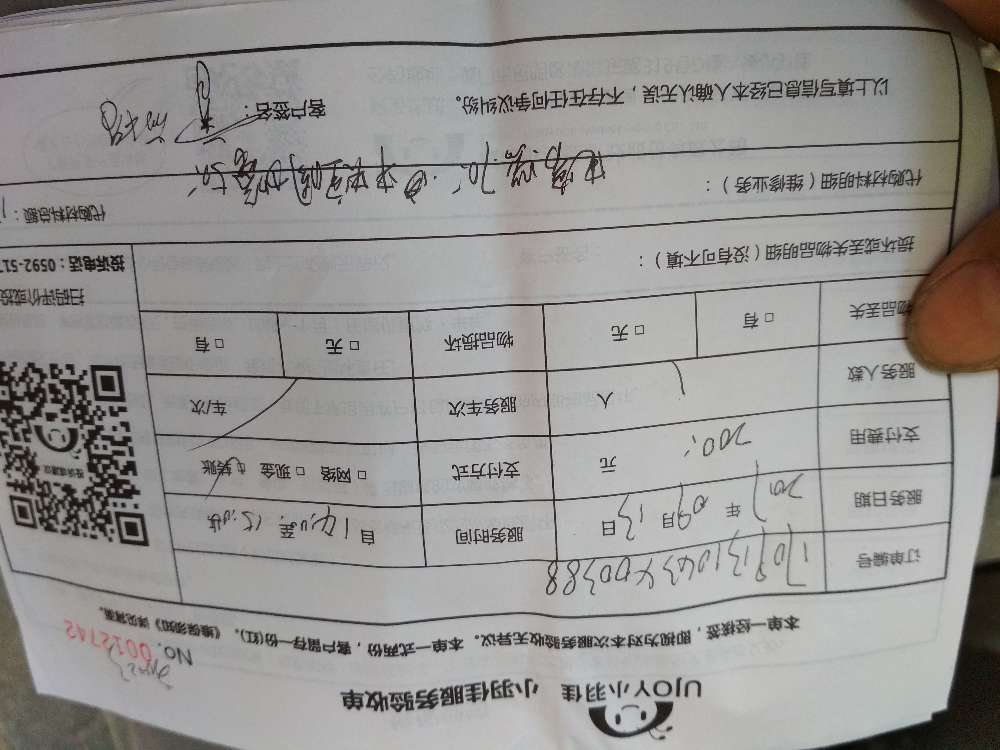 UJOY小羽佳 小羽佳服务验收单
No. 0012742
本单一经核签,即视为对本次服务验收无异议。本单一式两份,客户留存一份(红)。《维保须知》详见背面。
订单编号 170913104340038８
服务日期 2017 年 09 月 13 日 服务时间 自 14:00 至 15:
支付费用 200 元 支付方式 □ 网络 □ 现金 □ 转账
服务人数 1 人 服务车次 车/次
物品丢失 □ 有 □ 无 物品损坏 □ 无 □ 有
扫码评价或投
投诉电话:0592-517
损坏或丢失物品明细(没有可不填):
代购材料明细(维修业务): 代购材料总额:
以上填写信息已经本人确认无误,不存在任何争议纠纷。 客户签名: